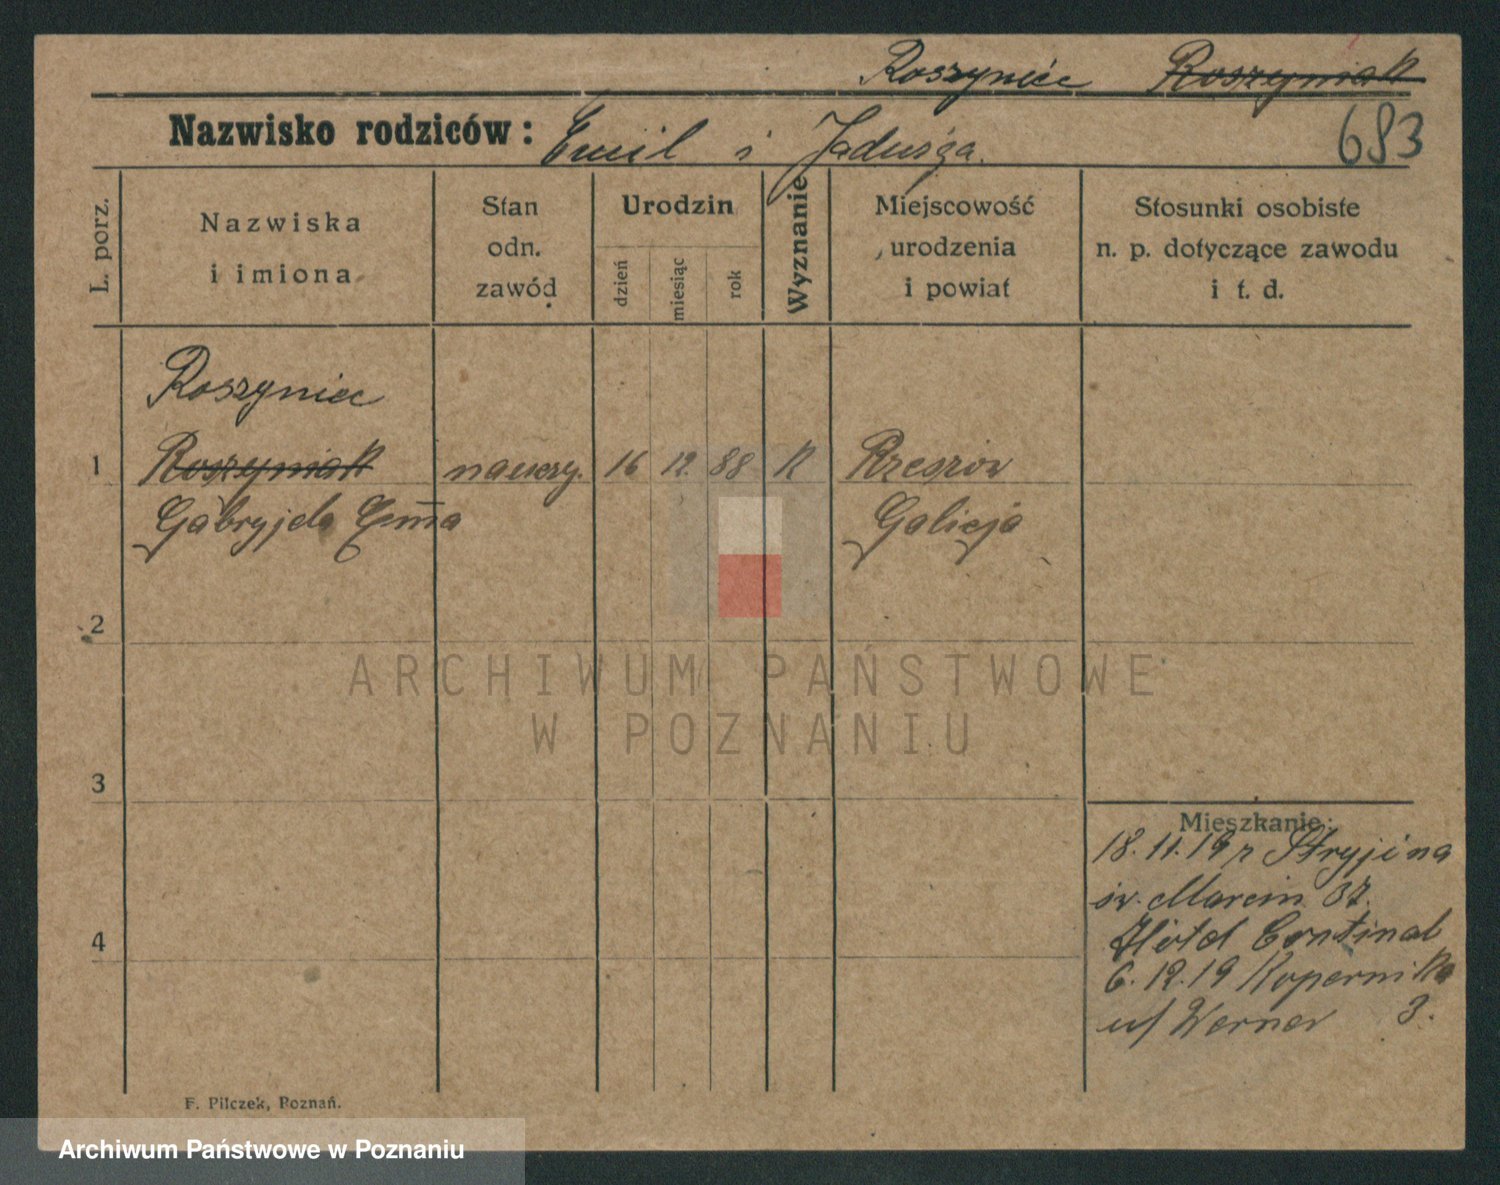 Roszyniec Roszyniak
Nazwisko rodziców: Emil i Jadwiga. 683
L. porz.
Nazwiska
i imiona
Stan
odn.
zawód
Urodzin
dzień
miesiąc
rok
Wyznanie
Miejscowość
urodzenia
i powiat
Stosunki osobiste
n. p. dotyczące zawodu
i t. d.
Roszyniec
1 Roszyniak nauczy. 16 12. 88 K Rzeszów
Gabryjela Em̅a Galicja
2
ARCHIWUM PAŃSTWOWE
W POZNANIU
3
Mieszkanie:
18.11.19 z Stryji na
św. Marcin 37.
4
Hotel Continal
6.12.19 Kopernika
u/ Werner 3.
F. Pilczek, Poznań.
Archiwum Państwowe w Poznaniu